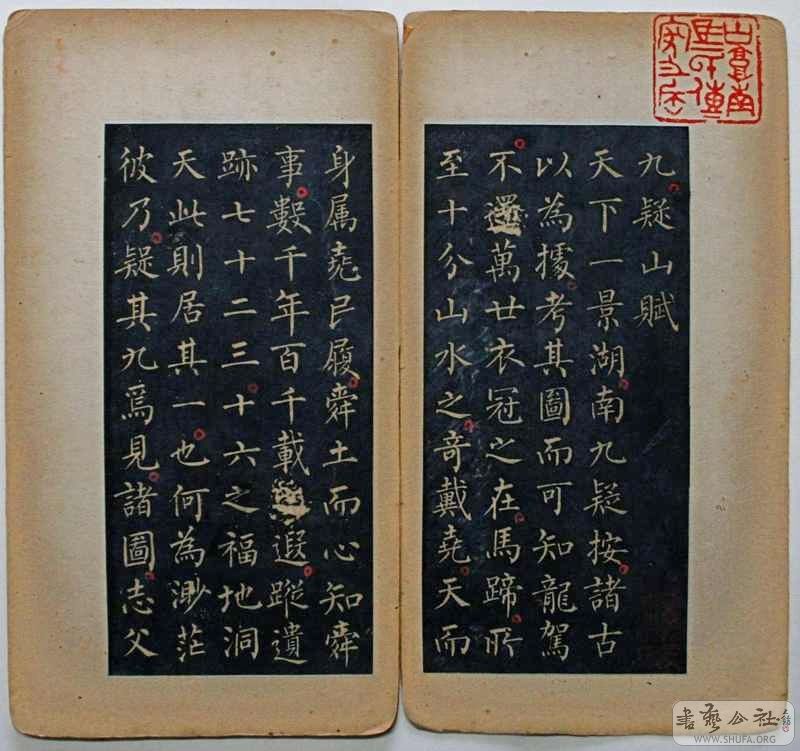 九疑山賦
天下一景湖南九疑按諸古
以為據考其圖而可知龍駕
不還萬世衣冠之在馬蹄所
至十分山水之奇戴堯天而
身属堯民履舜土而心知舜
事數千年百千載遐蹤遺
跡七十二三十六之福地洞
天此則居其一也何為渺茫
彼乃疑其九焉見諸圖志父
書藝公社
WWW.SHUFA.ORG